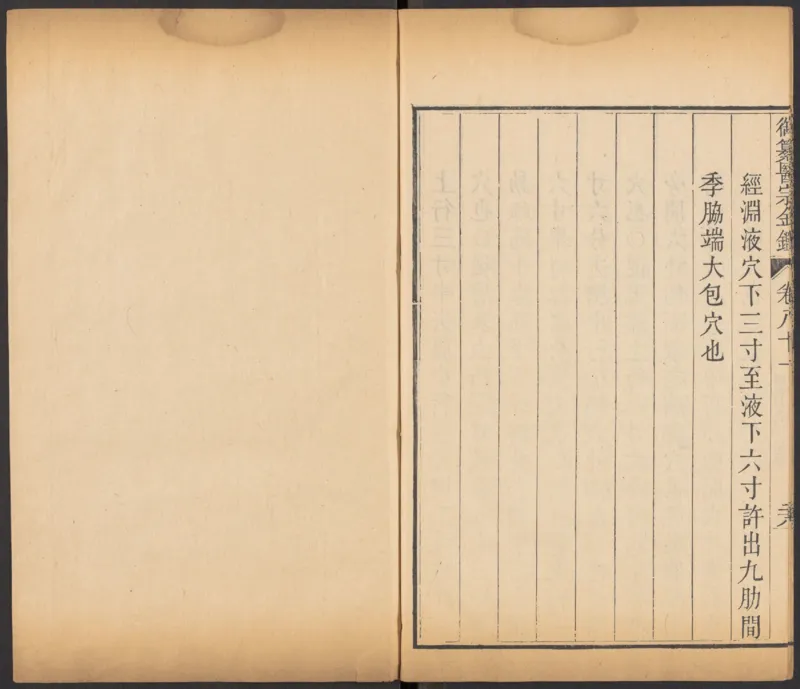 御纂醫宗金鑑 卷八十一
經淵液穴下三寸至液下六寸許出九肋間
季脇端大包穴也